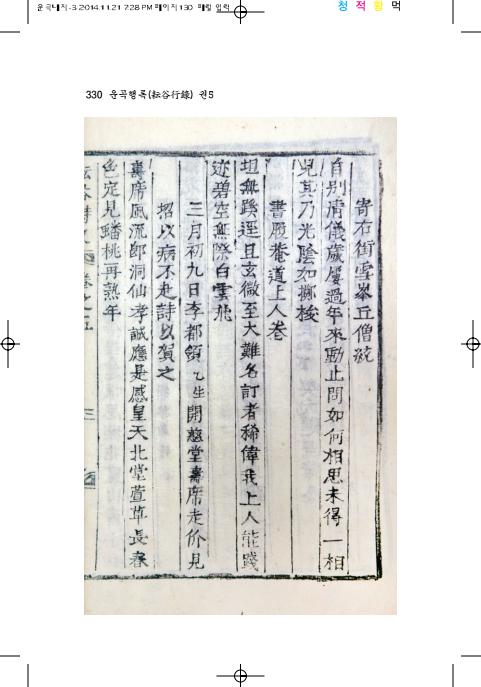 운곡대지-3 2014.11.21 7:28 PM 페이지130 매월 입력
청 적 황 먹
330 운곡행록(耘谷行錄) 권5
寄右街雪峯丘僧統
自別淸儀歲屢過年來動止問如何相思未得一相
見其乃光陰如擲梭
書履菴道上人卷
坦無蹊逕且玄微至大難名訂者稀偉我上人能踐
迹碧空無際白雲飛
三月初九日李都領乙生開慈堂壽席走价見
招以病不赴詩以賀之
壽席風流郎洞仙孝誠應是感皇天北堂萱草長春
色定見蟠桃再熟年